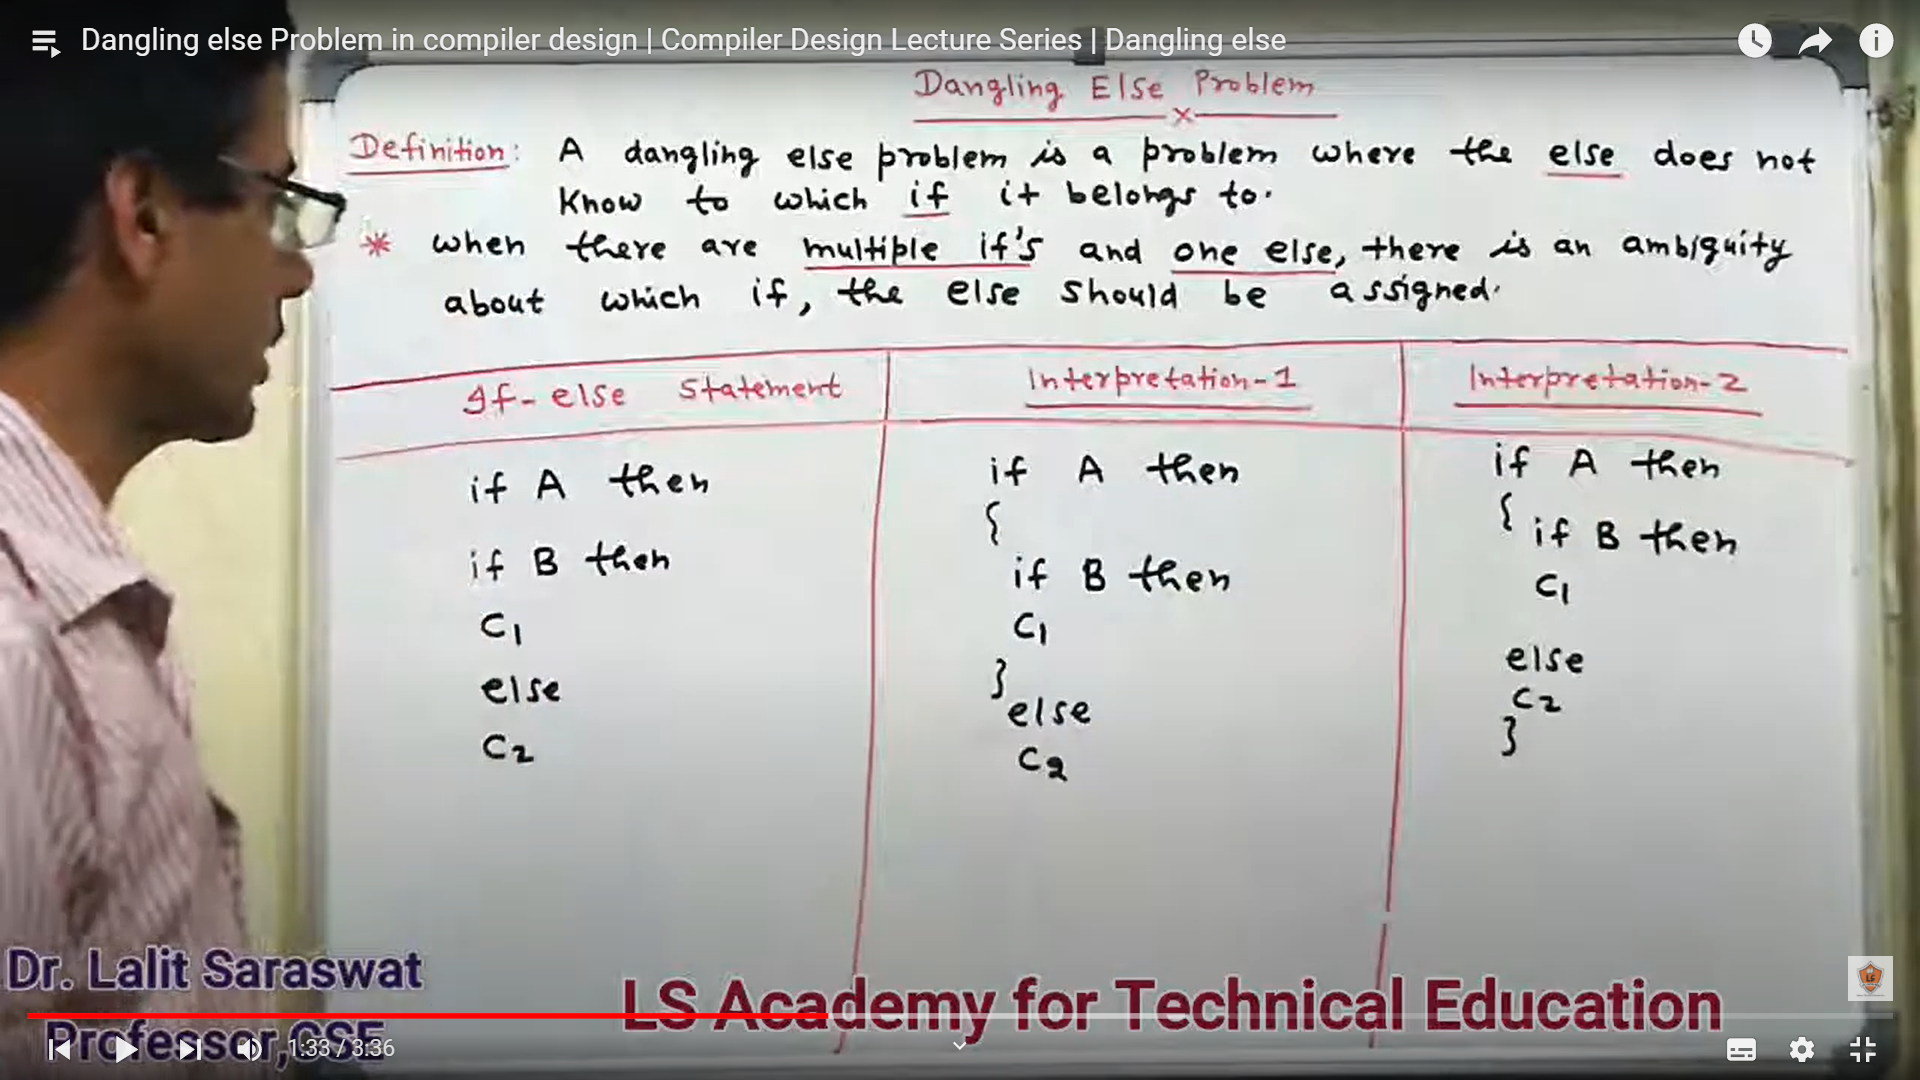 Dangling else Problem in compiler design | Compiler Design Lecture Series | Dangling else
Dangling Else Problem
Definition: A dangling else problem is a problem where the else does not
Know to which if it belongs to.
* when there are multiple if's and one else, there is an ambiguity
about which if, the else should be assigned.
If-else Statement
if A then
if B then
C1
else
C2
Interpretation-1
if A then
{
if B then
C1
}
else
C2
Interpretation-2
if A then
{ if B then
C1
else
C2
}
Dr. Lalit Saraswat
Professor, CSE
LS Academy for Technical Education
1:33 / 3:36